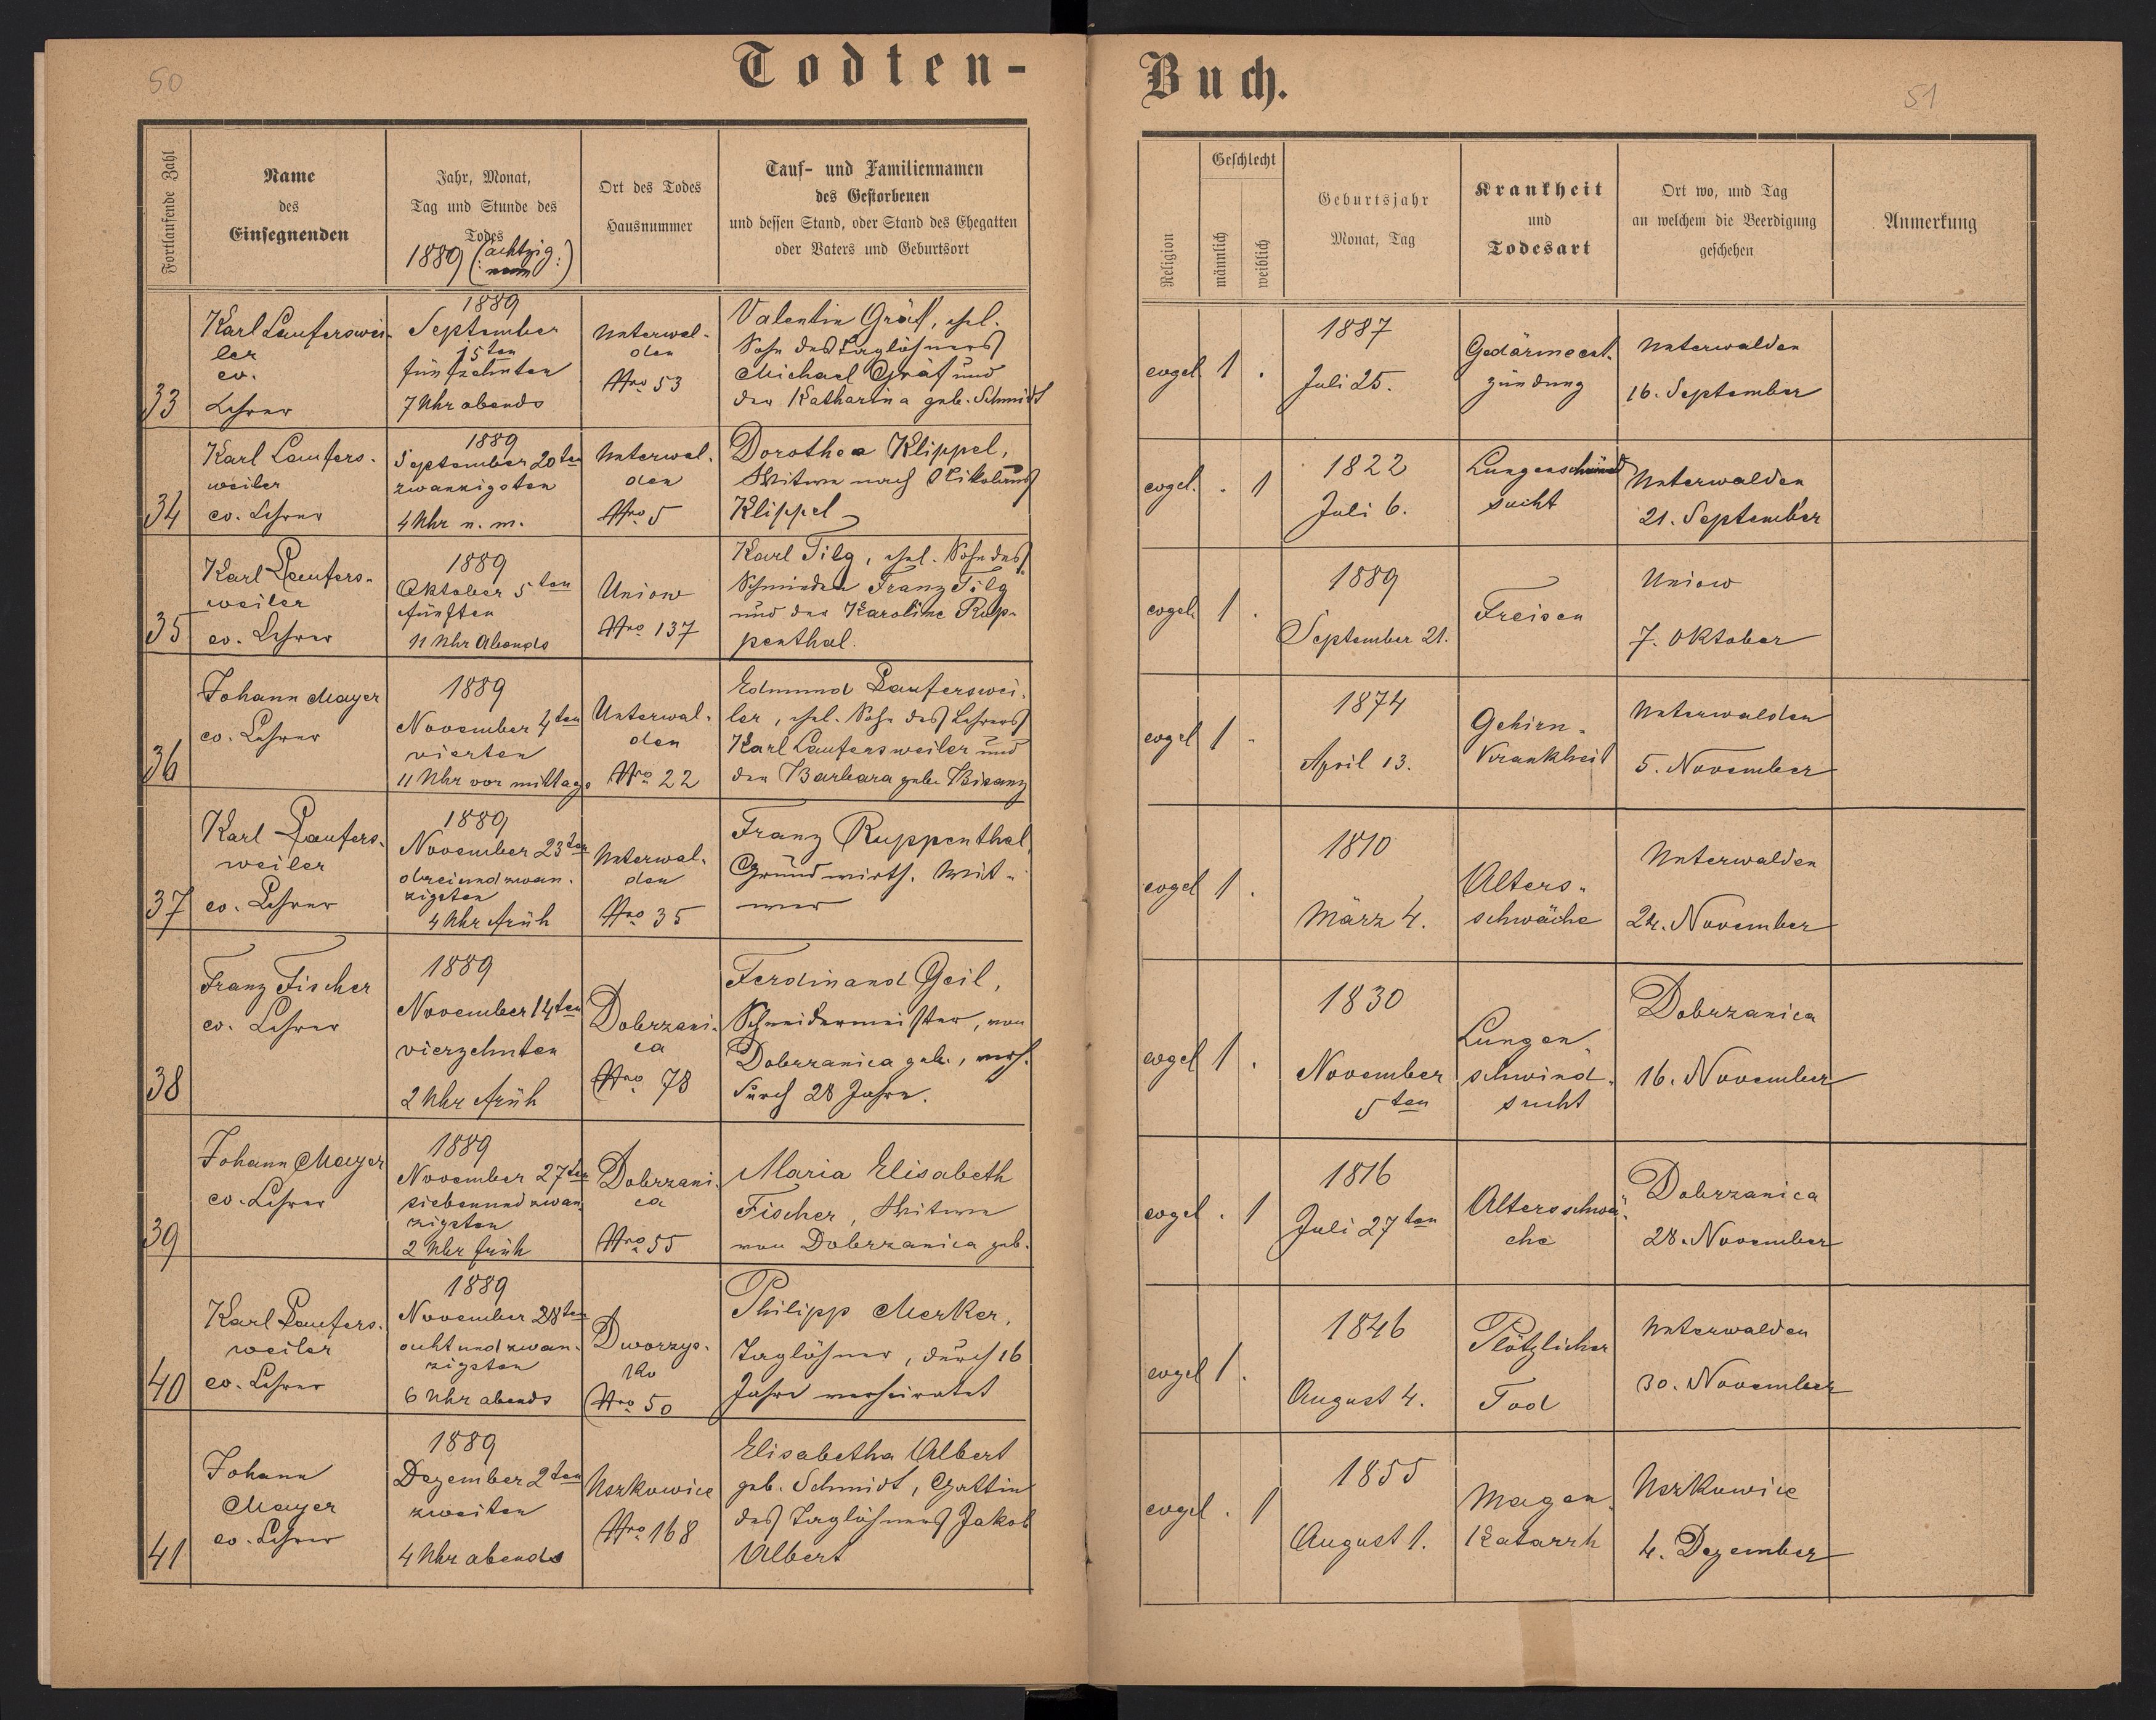 50
Todten-
Fortlaufende Zahl
Name
des
Einsegnenden
Jahr, Monat,
Tag und Stunde des
Todes
1889 (: achtzig
neun :)
Ort des Todes
Hausnummer
Tauf- und Familiennamen
des Gestorbenen
und dessen Stand, oder Stand des Ehegatten
oder Vaters und Geburtsort
33
Karl Laufterswei-
ler
ev.
Lehrer
1889
September
15ten
fünfzehnten
7 Uhr abends
Unterwal-
den
Nro 53
Valentin Gräf, ehel.
Sohn des Taglöhners
Michael Gräf und
der Katharina geb. Schmidt
34
Karl Laufters-
weiler
ev. Lehrer
1889
September 20ten
zwanzigsten
4 Uhr n. m.
Unterwal-
den
Nro 5
Dorothea Klippel,
Witwe nach Nikolaus
Klippel
35
Karl Laufters-
weiler
ev. Lehrer
1889
Oktober 5ten
fünften
11 Uhr Abends
Uniow
Nro 137
Karl Tilg, ehel. Sohn des
Schmieden Franz Tilg
und der Karoline Rup-
penthal.
36
Johann Mayer
ev. Lehrer
1889
November 4ten
vierten
11 Uhr vor mittags
Unterwal-
den
Nro 22
Edmund Laufterswei-
ler, ehel. Sohn des Lehrers
Karl Lauftersweiler und
der Barbara geb. Bisanz
37
Karl Laufters-
weiler
ev. Lehrer
1889
November 23ten
dreiundzwan-
zigsten
4 Uhr früh
Unterwal-
den
Nro 35
Franz Ruppenthal,
Grundwirth. Wit-
wer
38
Franz Fischer
ev. Lehrer
1889
November 14ten
vierzehnten
2 Uhr früh
Dobrzani-
ca
Nro 78
Ferdinand Geil,
Schneidermeister, von
Dobrzanica geb., verh.
durch 28 Jahre.
39
Johann Mayer
ev. Lehrer
1889
November 27ten
siebenundzwan-
zigsten
2 Uhr früh
Dobrzani-
ca
Nro 55
Maria Elisabeth
Fischer, Witwe
von Dobrzanica geb.
40
Karl Laufters-
weiler
ev. Lehrer
1889
November 28ten
achtundzwan-
zigsten
6 Uhr abends
Dworzys-
ko
Nro 50
Philipp Merker,
Taglöhner, durch 16
Jahre verheiratet
41
Johann
Mayer
ev. Lehrer
1889
Dezember 2ten
zweiten
4 Uhr abends
Uszkowice
Nro 168
Elisabetha Albert
geb. Schmidt, Gattin
des Taglöhners Jakob
Albert
Buch.
51
Religion
Geschlecht
männlich
weiblich
Geburtsjahr
Monat, Tag
Krankheit
und
Todesart
Ort wo, und Tag
an welchem die Beerdigung
geschehen
Anmerkung
evgel. 1 .
1887
Juli 25.
Gedärmeent-
zündung
Unterwalden
16. September
evgel. . 1
1822
Juli 6.
Lungenschwind
sucht
Unterwalden
21. September
evgel. 1 .
1889
September 21.
Freisen
Uniow
7. Oktober
evgel 1 -
1874
April 13.
Gehirn-
krankheit
Unterwalden
5. November
evgel 1 .
1810
März 4.
Alters-
schwäche
Unterwalden
24. November
evgel 1 .
1830
November
5ten
Lungen-
schwind-
sucht
Dobrzanica
16. November
evgel . 1
1816
Juli 27ten
Altersschwä-
che
Dobrzanica
28. November
evgel 1 .
1846
August 4.
Plötzlicher
Tod
Unterwalden
30. November
evgel . 1
1855
August 1.
Magen-
Katarrh
Uszkowice
4. Dezember